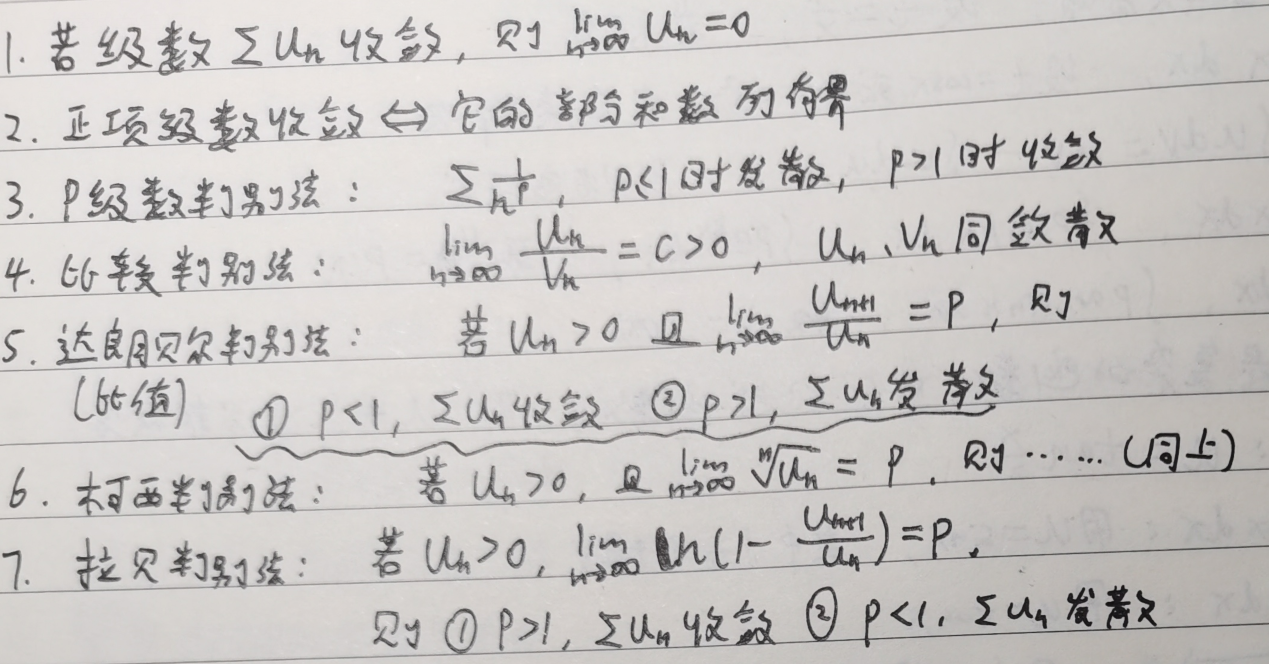 1. 若级数 ∑Un 收敛, 则 lim n→∞ Un = 0
2. 正项级数收敛 ⇔ 它的部分和数列有界
3. P级数判别法: ∑ 1/n^p, P≤1时发散, P>1时收敛
4. 比较判别法: lim n→∞ Un/Vn = C > 0, Un、Vn同敛散
5. 达朗贝尔判别法: 若 Un > 0 且 lim n→∞ Un+1/Un = P, 则
(比值) ① P<1, ∑Un收敛 ② P>1, ∑Un发散
6. 柯西判别法: 若 Un > 0, 且 lim n→∞ ⁿ√Un = P, 则……(同上)
7. 拉贝判别法: 若 Un > 0, lim n→∞ n(1 - Un+1/Un) = P,
则 ① P>1, ∑Un收敛 ② P<1, ∑Un发散